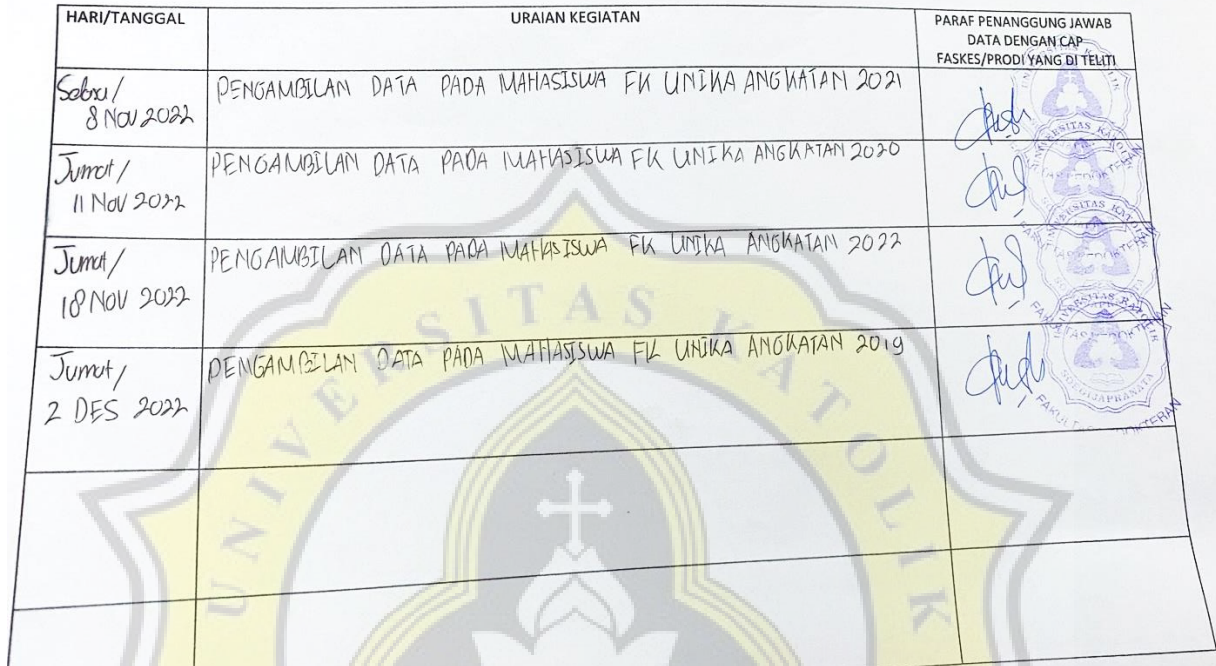 HARI/TANGGAL
URAIAN KEGIATAN
PARAF PENANGGUNG JAWAB
DATA DENGAN CAP
FASKES/PRODI YANG DI TELITI
Selasa/
8 NOV 2022
PENGAMBILAN DATA PADA MAHASISWA FK UNIKA ANGKATAN 2021
Jumat/
11 NOV 2022
PENGAMBILAN DATA PADA MAHASISWA FK UNIKA ANGKATAN 2020
Jumat/
18 NOV 2022
PENGAMBILAN DATA PADA MAHASISWA FK UNIKA ANGKATAN 2022
Jumat/
2 DES 2022
PENGAMBILAN DATA PADA MAHASISWA FK UNIKA ANGKATAN 2019
UNIVERSITAS KATOLIK
UNIVERSITAS KATOLIK
SOEGIJAPRANATA